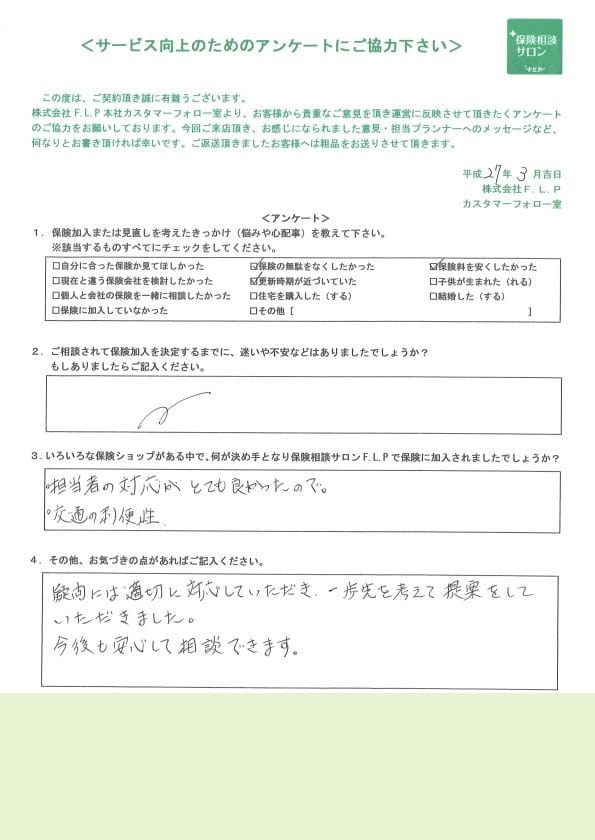 ＜サービス向上のためのアンケートにご協力下さい＞
保険相談
サロン
この度は、ご契約頂き誠に有難うございます。
株式会社F.L.P本社カスタマーフォロー室より、お客様から貴重なご意見を頂き運営に反映させて頂きたくアンケート
のご協力をお願いしております。今回ご来店頂き、お感じになられました意見・担当プランナーへのメッセージなど、
何なりとお書き頂ければ幸いです。ご返送頂きましたお客様へは粗品をお送りさせて頂きます。
平成27年 3月吉日
株式会社F.L.P
カスタマーフォロー室
＜アンケート＞
1．保険加入または見直しを考えたきっかけ（悩みや心配事）を教えて下さい。
※該当するものすべてにチェックをしてください。
□自分に合った保険か見てほしかった ☑保険の無駄をなくしたかった ☑保険料を安くしたかった
□現在と違う保険会社を検討したかった ☑更新時期が近づいていた □子供が生まれた（れる）
□個人と会社の保険を一緒に相談したかった □住宅を購入した（する） □結婚した（する）
□保険に加入していなかった □その他［ ］
2．ご相談されて保険加入を決定するまでに、迷いや不安などはありましたでしょうか？
もしありましたらご記入ください。
3．いろいろな保険ショップがある中で、何が決め手となり保険相談サロンF.L.Pで保険に加入されましたでしょうか？
・担当者の対応がとても良かったので。
・交通の利便性
4．その他、お気づきの点があればご記入ください。
疑問には適切に対応していただき、一歩先を考えて提案をして
いただきました。
今後も安心して相談できます。